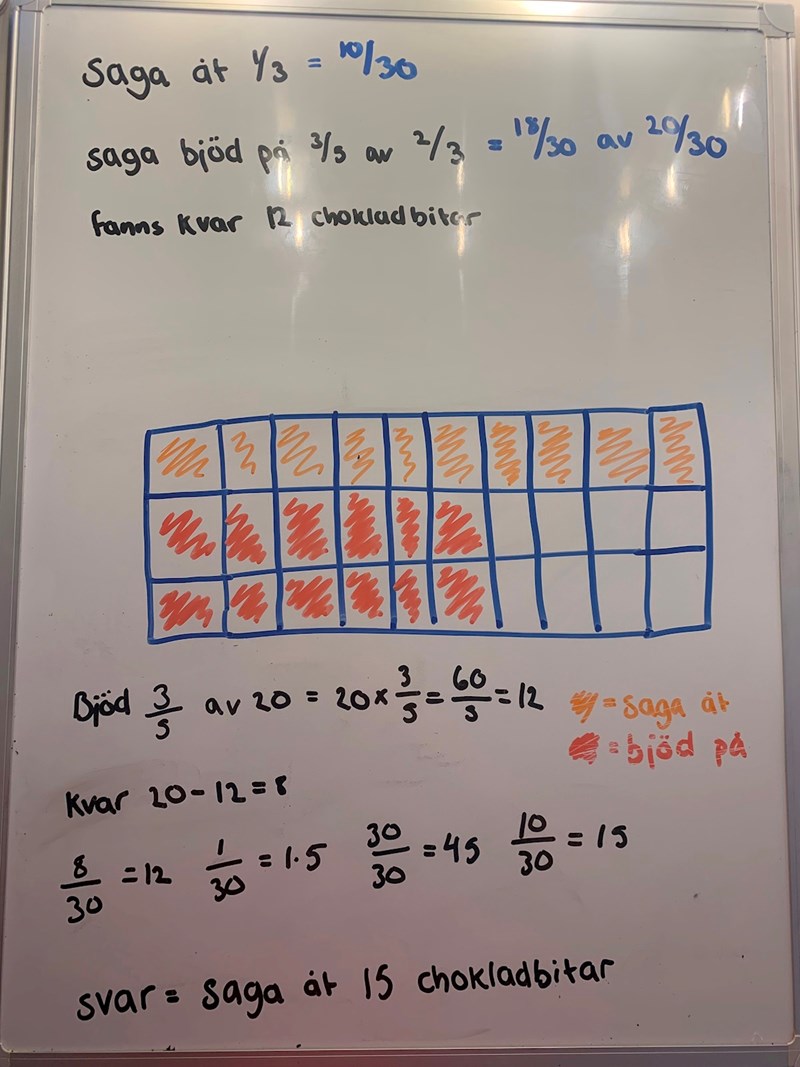 Saga åt 1/3 = 10/30
saga bjöd på 3/5 av 2/3 = 18/30 av 20/30
fanns kvar 12 chokladbitar
Bjöd 3/5 av 20 = 20 x 3/5 = 60/5 = 12
= saga åt
= bjöd på
kvar 20 - 12 = 8
8/30 = 12 1/30 = 1.5 30/30 = 45 10/30 = 15
svar = saga åt 15 chokladbitar